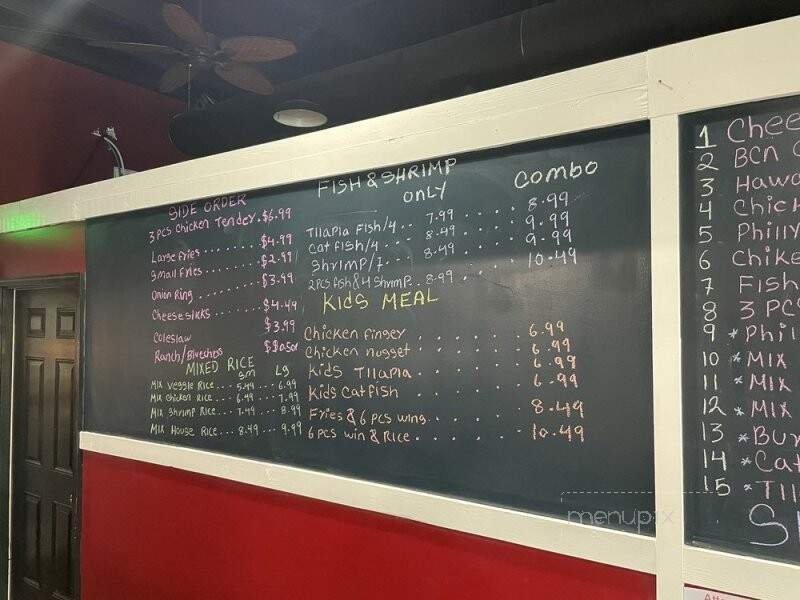 SIDE ORDER
3 PCS Chicken Tender. $6.99
Large fries ....... $4.99
Small Fries ....... $2.99
Onion Ring ........ $3.99
Cheesesticks ...... $4.49
Coleslaw $3.99
Ranch/Bluechess
MIXED RICE
Sm Lg
Mix veggie Rice... 5.49 ... 6.99
Mix chicken Rice... 6.49 ... 7.99
Mix shrimp Rice... 7.49 ... 8.99
Mix House Rice... 8.49 ... 9.99
FISH & SHRIMP
ONLY
Combo
TIlapia Fish/4 .. 7.99 ..... 8.99
Catfish/4 ... 8.49 ..... 9.99
Shrimp/7 ... 8.49 ..... 9.99
2PCS fish & 4 Shrimp.. 8.99 .... 10.49
KIDS MEAL
Chicken finger ........ 6.99
Chicken nugget ........ 6.99
Kids TIlapia ........ 6.99
Kids Catfish ........ 6.99
Fries & 6 pcs wing ...... 8.49
6 pcs win & Rice ....... 10.49
1 Chee
2 BCN
3 Hawa
4 Chick
5 Philly
6 Chike
7 Fish
8 3 PCS
9 * Phil
10 * MIX
11 * MIX
12 * MIX
13 * Bu
14 * Cat
15 * TIl
menupix